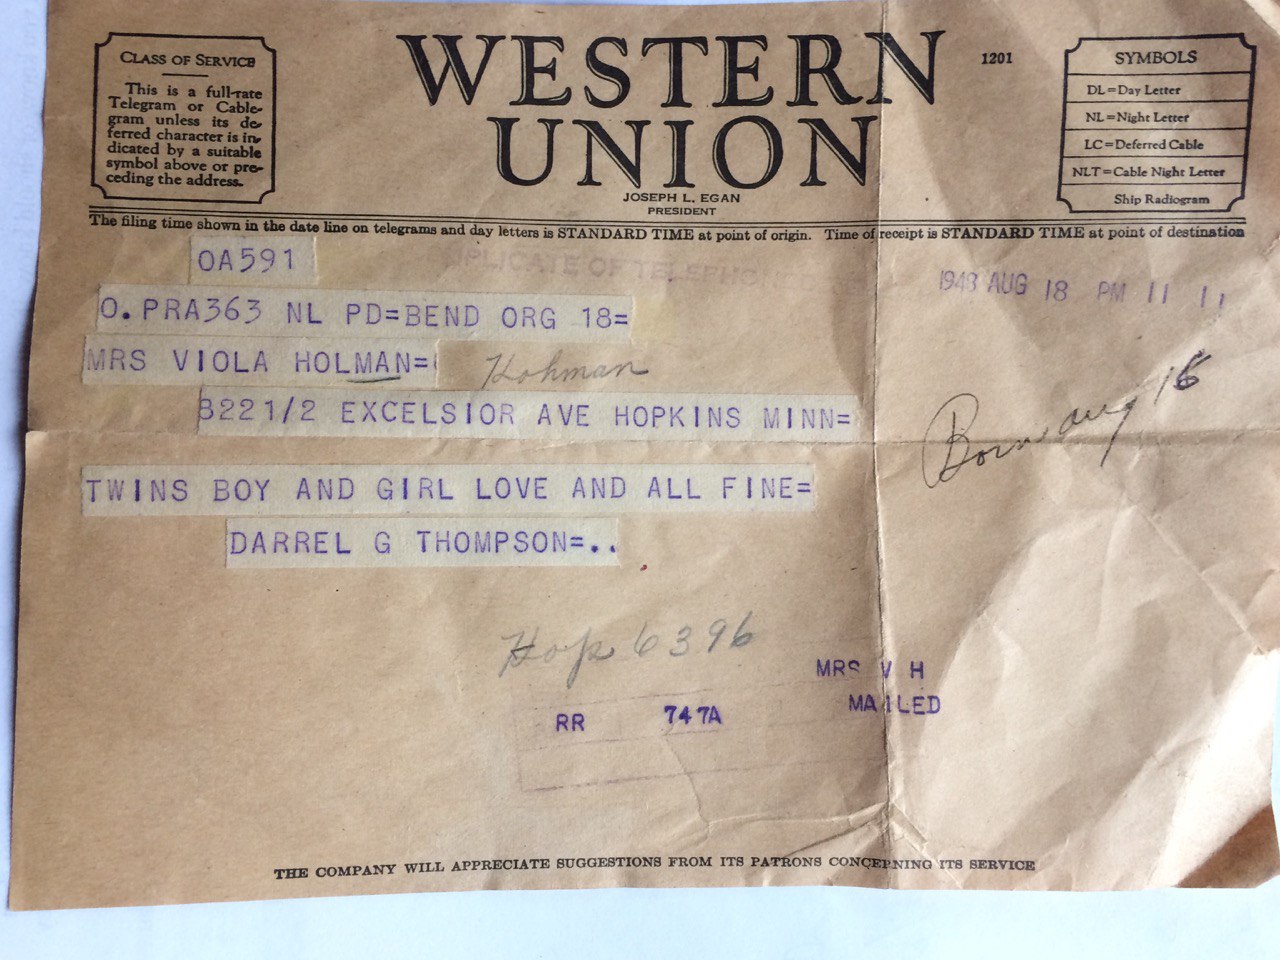 CLASS OF SERVICE
This is a full-rate
Telegram or Cable-
gram unless its de-
ferred character is in-
dicated by a suitable
symbol above or pre-
ceding the address.
WESTERN
UNION
1201
JOSEPH L. EGAN
PRESIDENT
SYMBOLS
DL=Day Letter
NL=Night Letter
LC=Deferred Cable
NLT=Cable Night Letter
Ship Radiogram
The filing time shown in the date line on telegrams and day letters is STANDARD TIME at point of origin. Time of receipt is STANDARD TIME at point of destination
DUPLICATE OF TELEPHON
OA591
1948 AUG 18 PM 11 11
O.PRA363 NL PD=BEND ORG 18=
MRS VIOLA HOLMAN=
Hohman
8221/2 EXCELSIOR AVE HOPKINS MINN=
Born aug 16
TWINS BOY AND GIRL LOVE AND ALL FINE=
DARREL G THOMPSON=..
Hop 6396
MRS V H
MAILED
RR 747A
THE COMPANY WILL APPRECIATE SUGGESTIONS FROM ITS PATRONS CONCERNING ITS SERVICE